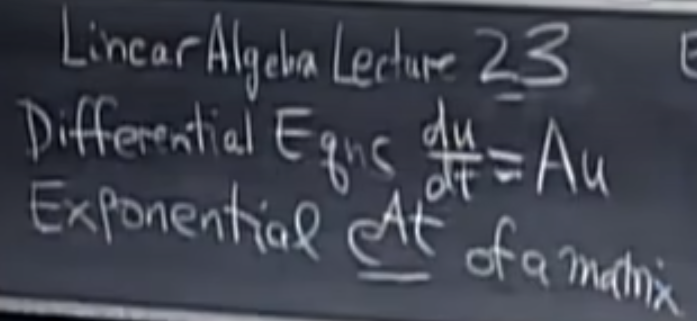 Linear Algebra Lecture 23
Differential Eqns du/dt = Au
Exponential e^At of a matrix